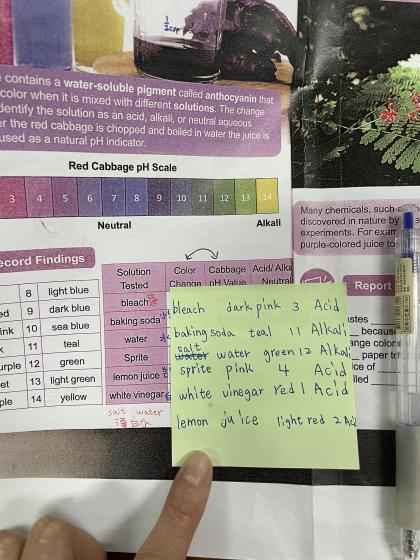 1/2 cup
contains a water-soluble pigment called anthocyanin that
color when it is mixed with different solutions. The change
dentify the solution as an acid, alkali, or neutral aqueous
er the red cabbage is chopped and boiled in water the juice is
used as a natural pH indicator.
Red Cabbage pH Scale
3 4 5 6 7 8 9 10 11 12 13 14
Neutral Alkali
Many chemicals, such
discovered in nature by
experiments. For exam
purple-colored juice to
ecord Findings
8 light blue
9 dark blue
ink 10 sea blue
k 11 teal
urple 12 green
et 13 light green
ple 14 yellow
Solution Tested
Color Change
Cabbage pH Value
Acid/ Alka Neutral
bleach
baking soda
water
Sprite
lemon juice
white vinegar
salt water
bleach dark pink 3 Acid
baking soda teal 11 Alkali
salt
water water green 12 Alkali
sprite pink 4 Acid
white vinegar red 1 Acid
lemon juice light red 2 Aci
Report
tastes
becaus
ange color
paper to
ice of
lled